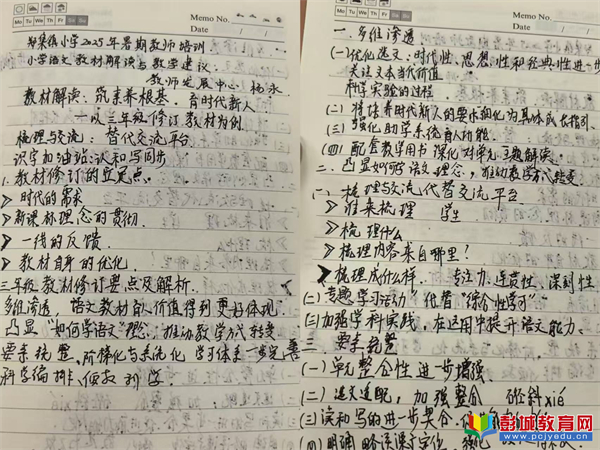 Memo No.
Mo Tu We Th Fr Sa Su
Date
郑集镇小学2025年暑期教师培训
小学语文教材解读与教学建议
教师发展中心 杨永
教材解读:筑素养根基,育时代新人
—以三年级修订教材为例
梳理与交流:替代交流平台
识字加油站:认和写同步
1. 教材修订的立足点
> 时代的需求
> 新课标理念的贯彻
> 一线的反馈
> 教材自身的优化
三年级教材修订要点及解析
多维渗透,语文教材育人价值得到更好体现
凸显"如何学语文"理念,推动教学方式转变
要素统整,阶梯化与系统化 学习体系一步完善
科学编排,便教利学。
Mo Tu We Th Fr Sa Su
Memo No.
Date
一. 多维渗透
(一)优化选文:时代性、思想性和经典性进一步
关注文本当代价值
科学实验的过程
(二)将培养时代新人的要求细化为具体成长指引
(三)强化助学系统育人功能。
(四)配套教学用书深化对单元主题解读。
二. 凸显如何学语文理念,推动教学方式转变。
(一)梳理与交流代替交流平台
> 谁来梳理 学生
> 梳理什么
> 梳理内容来自哪里?
> 梳理成什么样. 专注力、连贯性、深刻性
(二)专题学习活动"代替"综合性学习"
(三)加强学科实践,在运用中提升语文能力。
三 要素统整
(一)单元整合性进一步增强。
(二)选文适配,加强整合 斜xié
(三)读和写的进一步契合,
(四)明确略读课文定位,
彭城教育网
www.pcjyedu.cn